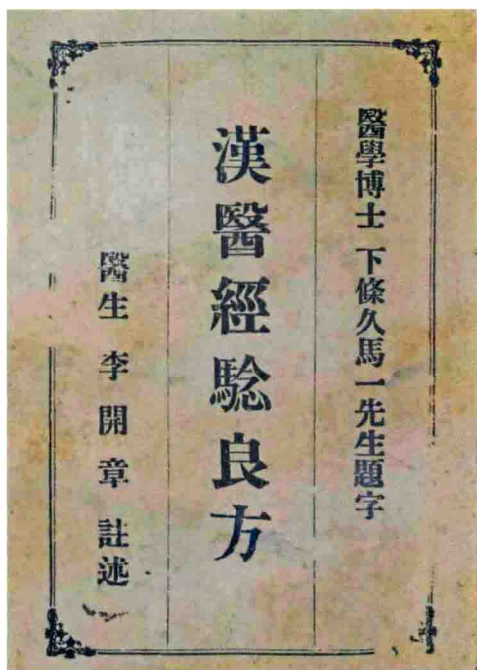 醫學博士 下條久馬一先生題字
漢醫經騐良方
醫生 李開章 註述